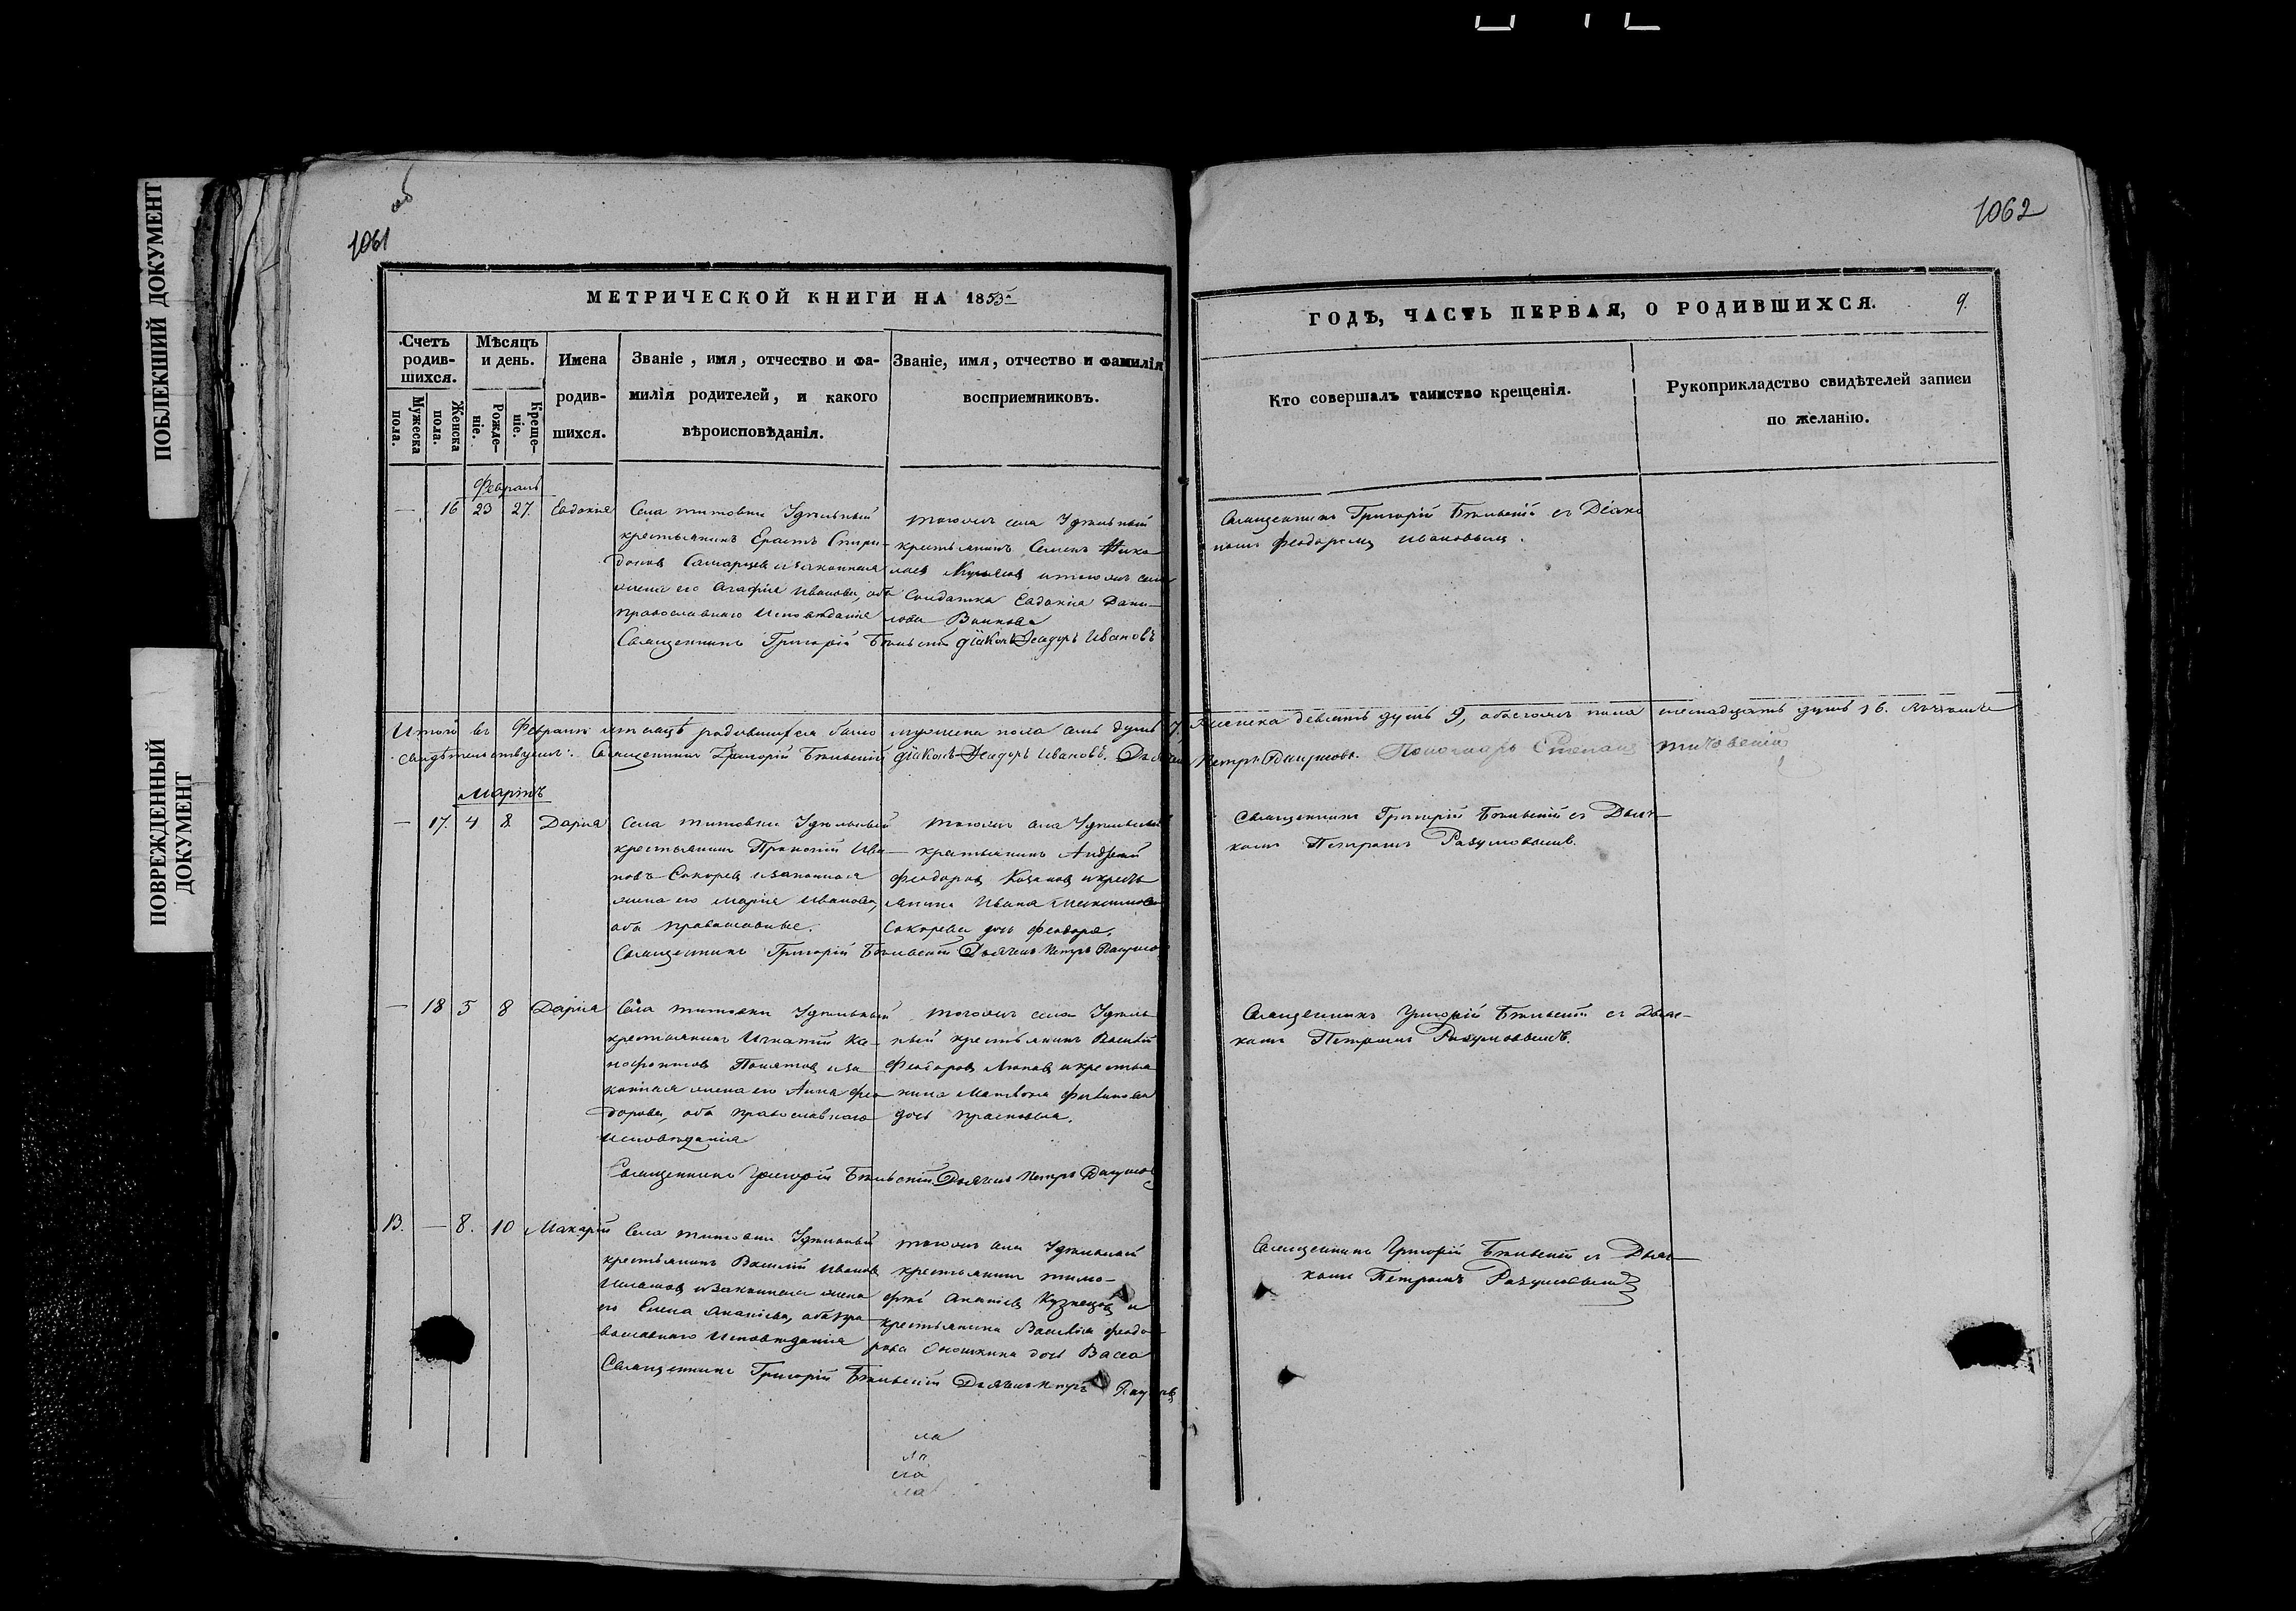 ПОБЛЕКШИЙ ДОКУМЕНТ
ПОВРЕЖДЕННЫЙ
ДОКУМЕНТ
об
1061
МЕТРИЧЕСКОЙ КНИГИ НА 1853
Счетъ родив-шихся.
Мѣсяцъ и день.
Мужеска пола.
Женска пола.
Рожде-ніе.
Креще-ніе.
Имена родив-шихся.
Званіе, имя, отчество и фа-
милія родителей, и какого
вѣроисповѣданія.
Званіе, имя, отчество и фамилія
восприемниковъ.
Февраль
— 16 23 27. Евдокія
Села Титовки Удѣльный
крестьянинъ Ерастъ Спири-
доновъ и законная
жена его Агафія Иванова, оба
православнаго Исповѣданія
Священникъ Григорій Бѣльскій діаконъ Ѳеодоръ Ивановъ
тогожъ села Удѣльный
крестьянинъ Семенъ Нико
лаевъ и тогожъ села
Солдатка Евдокіа Дани-
лова
Итого въ Февралѣ мѣсяцѣ родившихся было мужеска пола семь душъ 7, женска девять душъ 9, обоего пола шестнадцать душъ 16.
свидѣтельствуемъ: Священникъ Григорій Бѣльскій діаконъ Ѳеодоръ Ивановъ. Дьячекъ Петръ Разумовъ. Пономарь Степанъ
Мартъ
— 17. 4 8 Дарія
Села Титовки Удѣльный
крестьянинъ Прокопій Ива
новъ Сокоревъ и законная
жена его Марія Иванова,
оба православные.
Священникъ Григорій Бѣльскій Дьячекъ Петръ Разумов
тогожъ села Удѣльный
крестьянинъ Андрей
Феодоровъ Козаковъ и кресть
янина Ивана Максимова
Сокорева дочь Феодора.
— 18 5 8 Дарія
Села Титовки Удѣльный
крестьянинъ Игнатій
и за
конная жена его Анна Фео
дорова, оба православнаго
исповѣданія
Священникъ Григорій Бѣльскій Дьячекъ Петръ Разумов
тогожъ села Удѣль
ный крестьянинъ Василій
Феодоровъ и крестья
нина Матвея
дочь
13. — 8. 10 Макарій
Села Титовки Удѣльный
крестьянинъ Василій Ивановъ
и законная жена
его Елена Ананіева, оба пра
вославнаго Исповѣданія
Священникъ Григорій Бѣльскій Дьячекъ Петръ Разумовъ
тогожъ села Удѣльный
крестьянинъ Тимо-
фей Ананіевъ Кузнецовъ и
крестьянина Василія Феодо
рова дочь Васса
ла
ла
ла
1062
ГОДЪ, ЧАСТЬ ПЕРВАЯ, О РОДИВШИХСЯ. 9.
Кто совершалъ таинство крещенія.
Рукоприкладство свидѣтелей записи
по желанію.
Священникъ Григорій Бѣльскій съ Діако
номъ Феодоромъ Ивановымъ.
Священникъ Григорій Бѣльскій съ Дьяч-
комъ Петромъ Разумовымъ.
Священникъ Григорій Бѣльскій съ Дьяч-
комъ Петромъ Разумовымъ.
Священникъ Григорій Бѣльскій съ Дьяч-
комъ Петромъ Разумовымъ